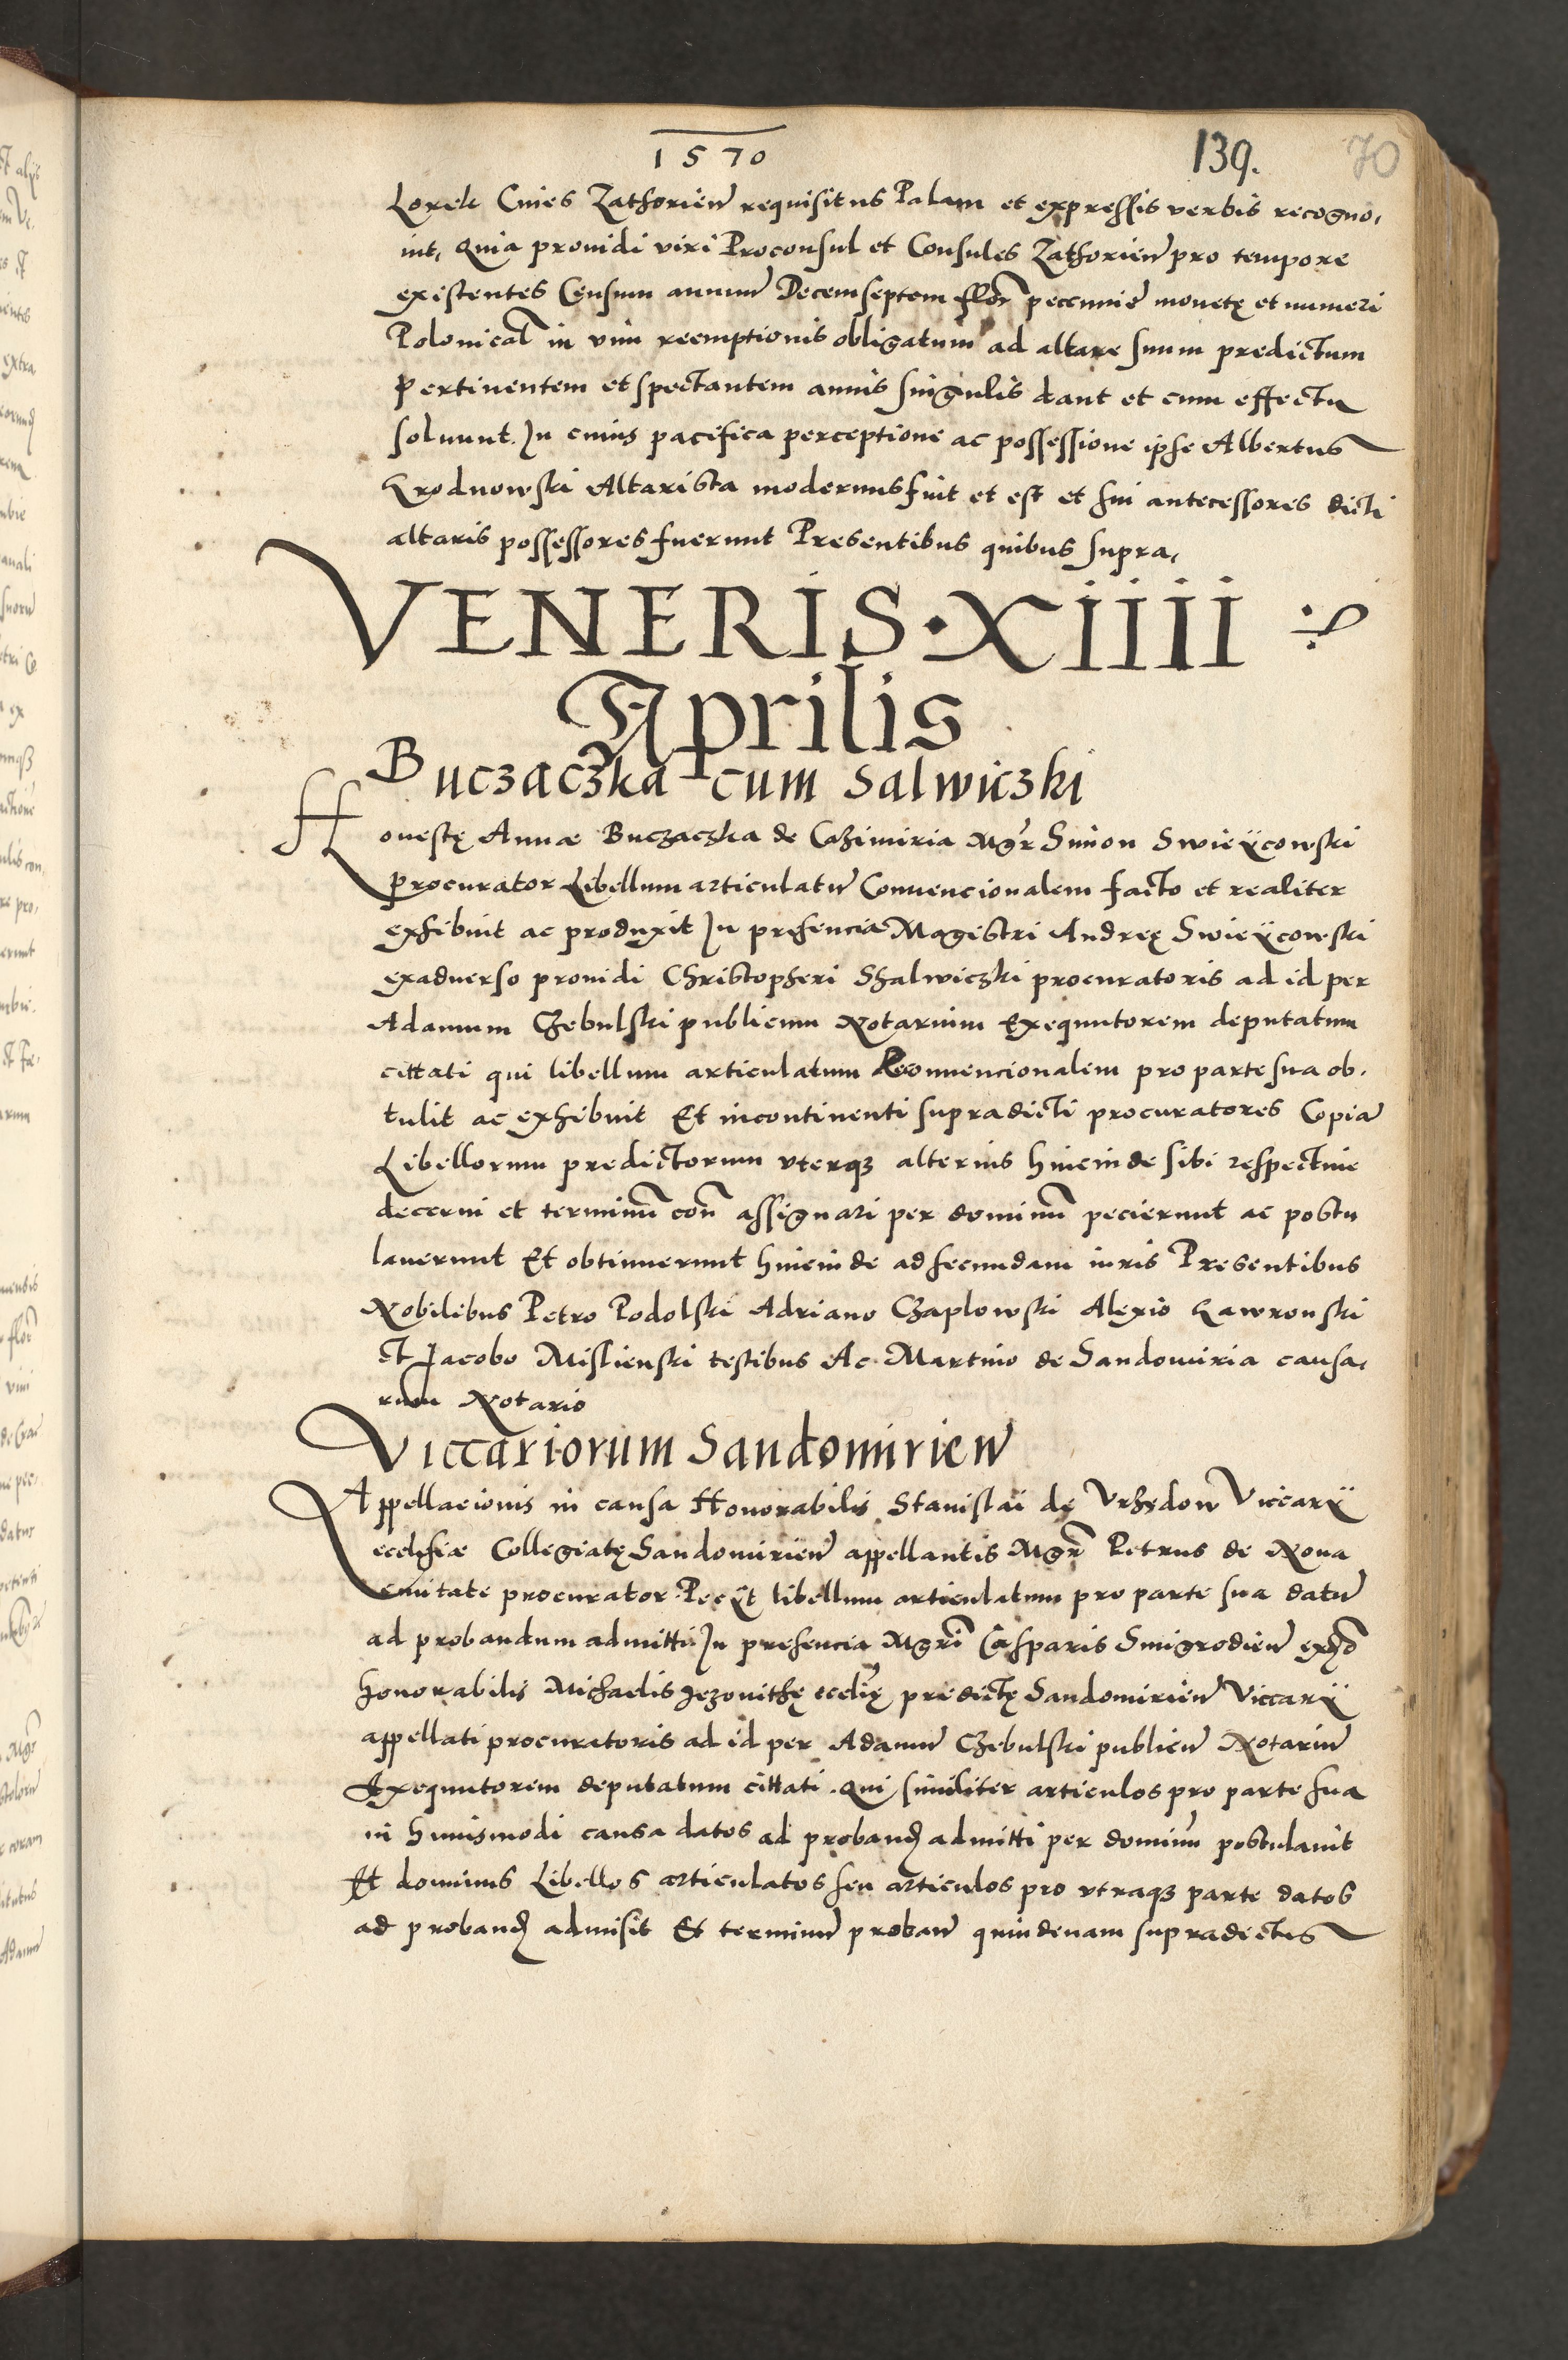 1570
139. 70
Lorek Ciues Zathorien requisitus Palam et expressis verbis recogno,
uit, Quia prouidi viri Proconsul et Consules Zathorien pro tempore
existentes Censum annuu Decemseptem flor peccunie monetę et numeri
Polonical in vim reemptionis obligatum ad altare suum predictum
pertinentem et spectantem annis singulis dant et cum effectu
soluunt. In cuius pacifica perceptione ac possessione ipse Albertus
Krodnowski Altarista modernus fuit et est et sui antecessores dicti
altaris possessores fuerunt Presentibus quibus supra,
VENERIS · XIIII
Aprilis
Buczaczka cum Salwiczki
Honestę Annæ Buczaczka de Cazimiria Mgr Simon Swieÿcowski
procurator Libellum articulatu Conuencionalem facto et realiter
exhibuit ac produxit In presencia Magistri Andreę Swieÿcowski
exaduerso prouidi Christopheri Shalwiczki procuratoris ad id per
Adamum Czebulski publicum Notarium Exequutorem deputatum
cittati qui libellum articulatum Reconuencionalem pro parte sua ob,
tulit ac exhibuit Et incontinenti supradicti procuratores Copia
Libellorum predictorum vterqz alterius hincinde sibi respectiue
decerni et terminu con assignari per dominu pecierunt ac postu
lauerunt Et obtinuerunt hincinde ad secundam iuris Presentibus
Nobilibus Petro Podolski Adriano Czaplowski Alexio Gawronski
et Jacobo Mislienski testibus Ac Martino de Sandomiria causa,
rum Notario
Viccariorum Sandomirien
Appellacionis in causa Honorabilis Stanislai de Vrzędow Viccarÿ
ecclesiæ Collegiatę Sandomirien appellantis Mgr Petrus de Noua
ciuitate procurator Peciÿt libellum articulatum pro parte sua datu
ad probandum admitti In presencia Mgri Casparis Smigrodien exado
honorabilis Michaelis Jezovithę ecclię predictę Sandomirien Viccarÿ
appellati procuratoris ad id per Adamu Czebulski publicu Notariu
Exequutorem deputatum cittati. Qui similiter articulos pro parte sua
in huiusmodi causa datos ad proband admitti per dominu postulauit
Et dominus Libellos articulatos seu articulos pro vtraqz parte datos
ad proband admisit Et terminu proban quindenam supradictus